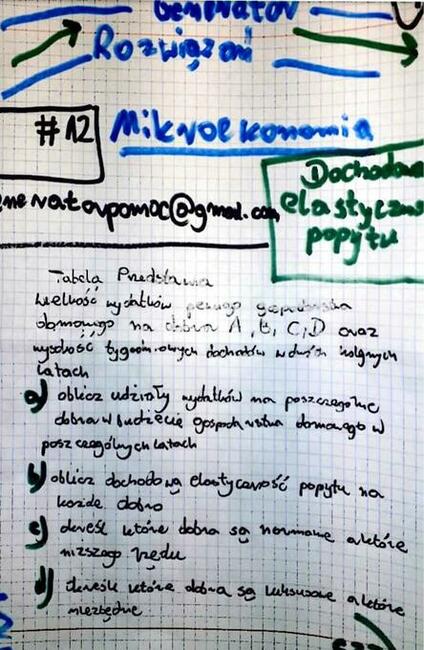 Generator
Rozwiązań
#12 Mikroekonomia
eneratorpomoc@gmail.com
Dochodowa
elastyczno
popytu
Tabela Przedstawia
wielkość wydatków pewnego gospodarstwa
domowego na dobra A, B, C, D oraz
wysokość tygodniowych dochodów w dwóch kolejnych
latach
a) oblicz udziały wydatków na poszczególne
dobra w budżecie gospodarstwa domowego w
poszczególnych latach
b) oblicz dochodową elastyczność popytu na
każde dobro
c) określ które dobra są normalne a które
niższego rzędu
d) określ które dobra są luksusowe a które
niezbędne